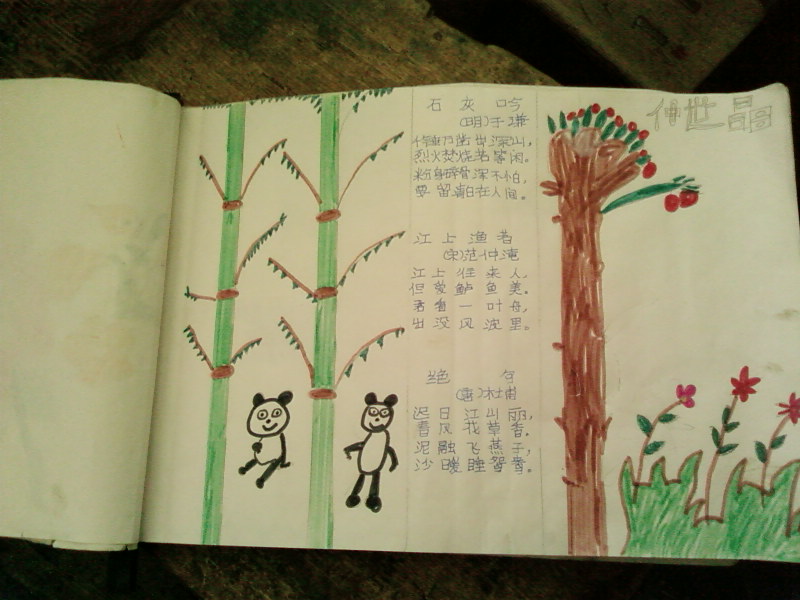 仲世晶
石灰吟
(明)于谦
千锤万凿出深山,
烈火焚烧若等闲。
粉身碎骨浑不怕,
要留清白在人间。
江上渔者
(宋)范仲淹
江上往来人,
但爱鲈鱼美。
君看一叶舟,
出没风波里。
绝句
(唐)杜甫
迟日江山丽,
春风花草香。
泥融飞燕子,
沙暖睡鸳鸯。